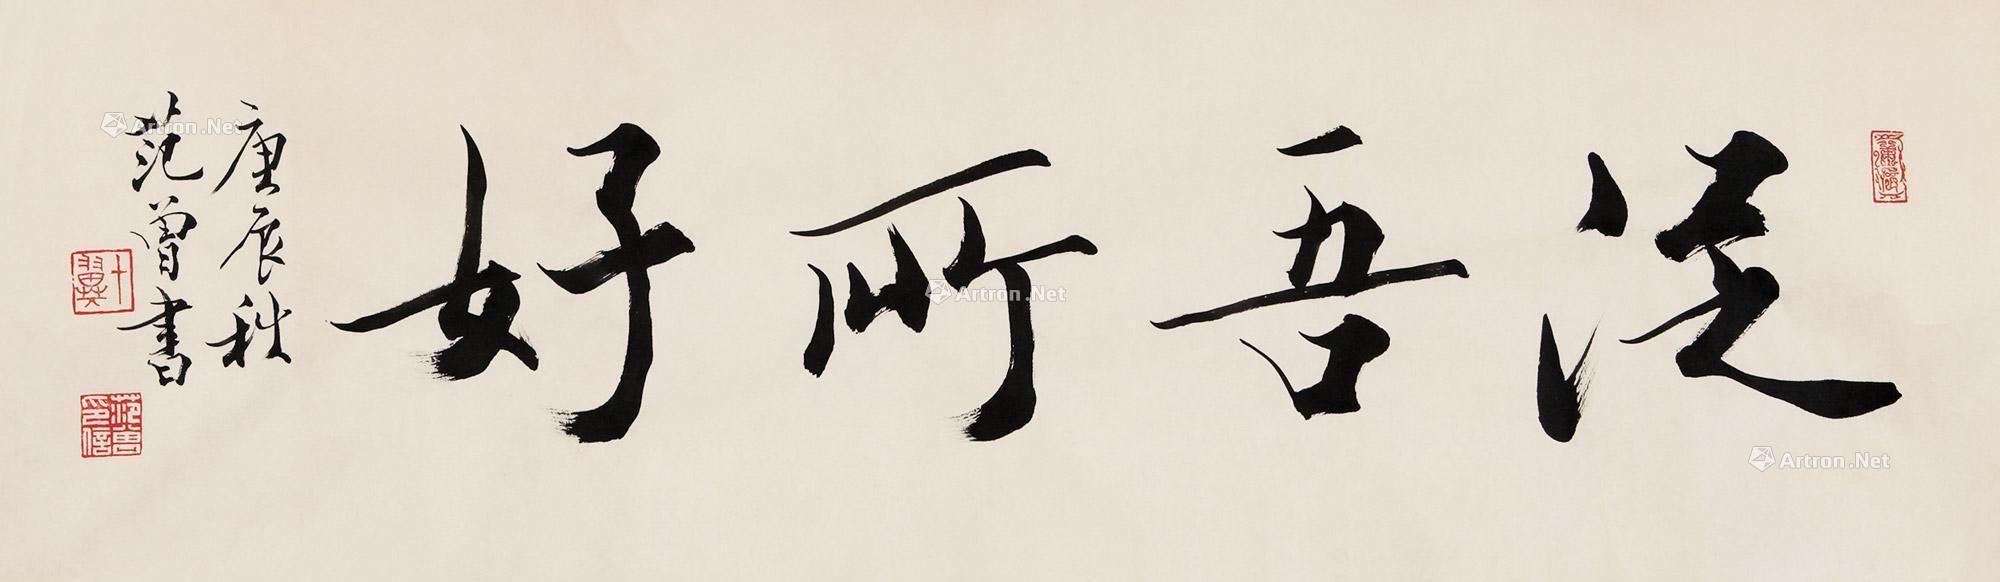 從吾所好
庚辰秋
范曾書
十翼
范曾印信
Artron.Net
Artron.Net
Artron.Net